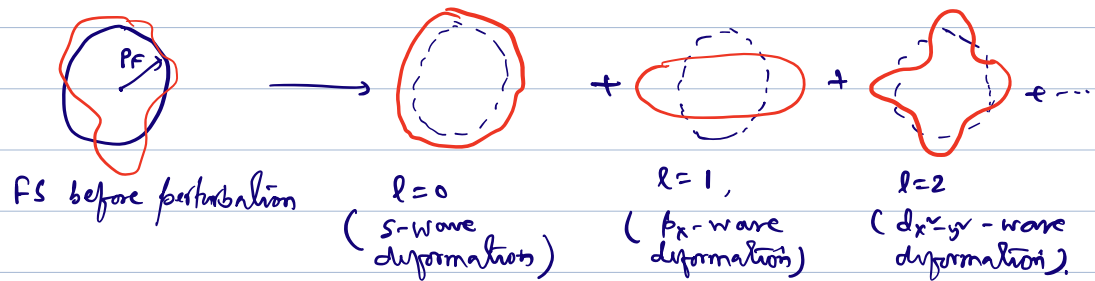 PF
+ + + ----
FS before perturbation
l=0
l=1,
l=2
(s-wave
deformation)
(px-wave
deformation)
(dx²-y² - wave
deformation).